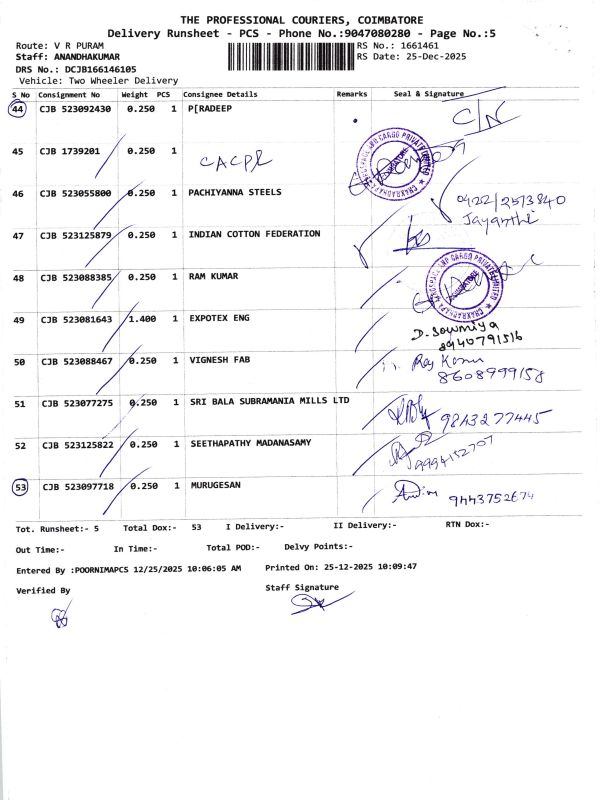 THE PROFESSIONAL COURIERS, COIMBATORE
Delivery Runsheet - PCS - Phone No.:9047080280 - Page No.:5
Route: V R PURAM
RS No.: 1661461
Staff: ANANDHAKUMAR
RS Date: 25-Dec-2025
DRS No.: DCJB166146105
Vehicle: Two Wheeler Delivery
S No Consignment No Weight PCS Consignee Details Remarks Seal & Signature
44 CJB 523092430 0.250 1 P[RADEEP C/N
45 CJB 1739201 0.250 1 CACPL
46 CJB 523055800 0.250 1 PACHIYANNA STEELS 0422/2573840
Jayanthi
47 CJB 523125879 0.250 1 INDIAN COTTON FEDERATION
48 CJB 523088385 0.250 1 RAM KUMAR
49 CJB 523081643 1.400 1 EXPOTEX ENG D. Sowmiya
8940791516
50 CJB 523088467 0.250 1 VIGNESH FAB
8608999158
51 CJB 523077275 0.250 1 SRI BALA SUBRAMANIA MILLS LTD 9843277445
52 CJB 523125822 0.250 1 SEETHAPATHY MADANASAMY 9994152707
53 CJB 523097718 0.250 1 MURUGESAN 9443752674
Tot. Runsheet:- 5 Total Dox:- 53 I Delivery:- II Delivery:- RTN Dox:-
Out Time:- In Time:- Total POD:- Delvy Points:-
Entered By :POORNIMAPCS 12/25/2025 10:06:05 AM Printed On: 25-12-2025 10:09:47
Verified By Staff Signature